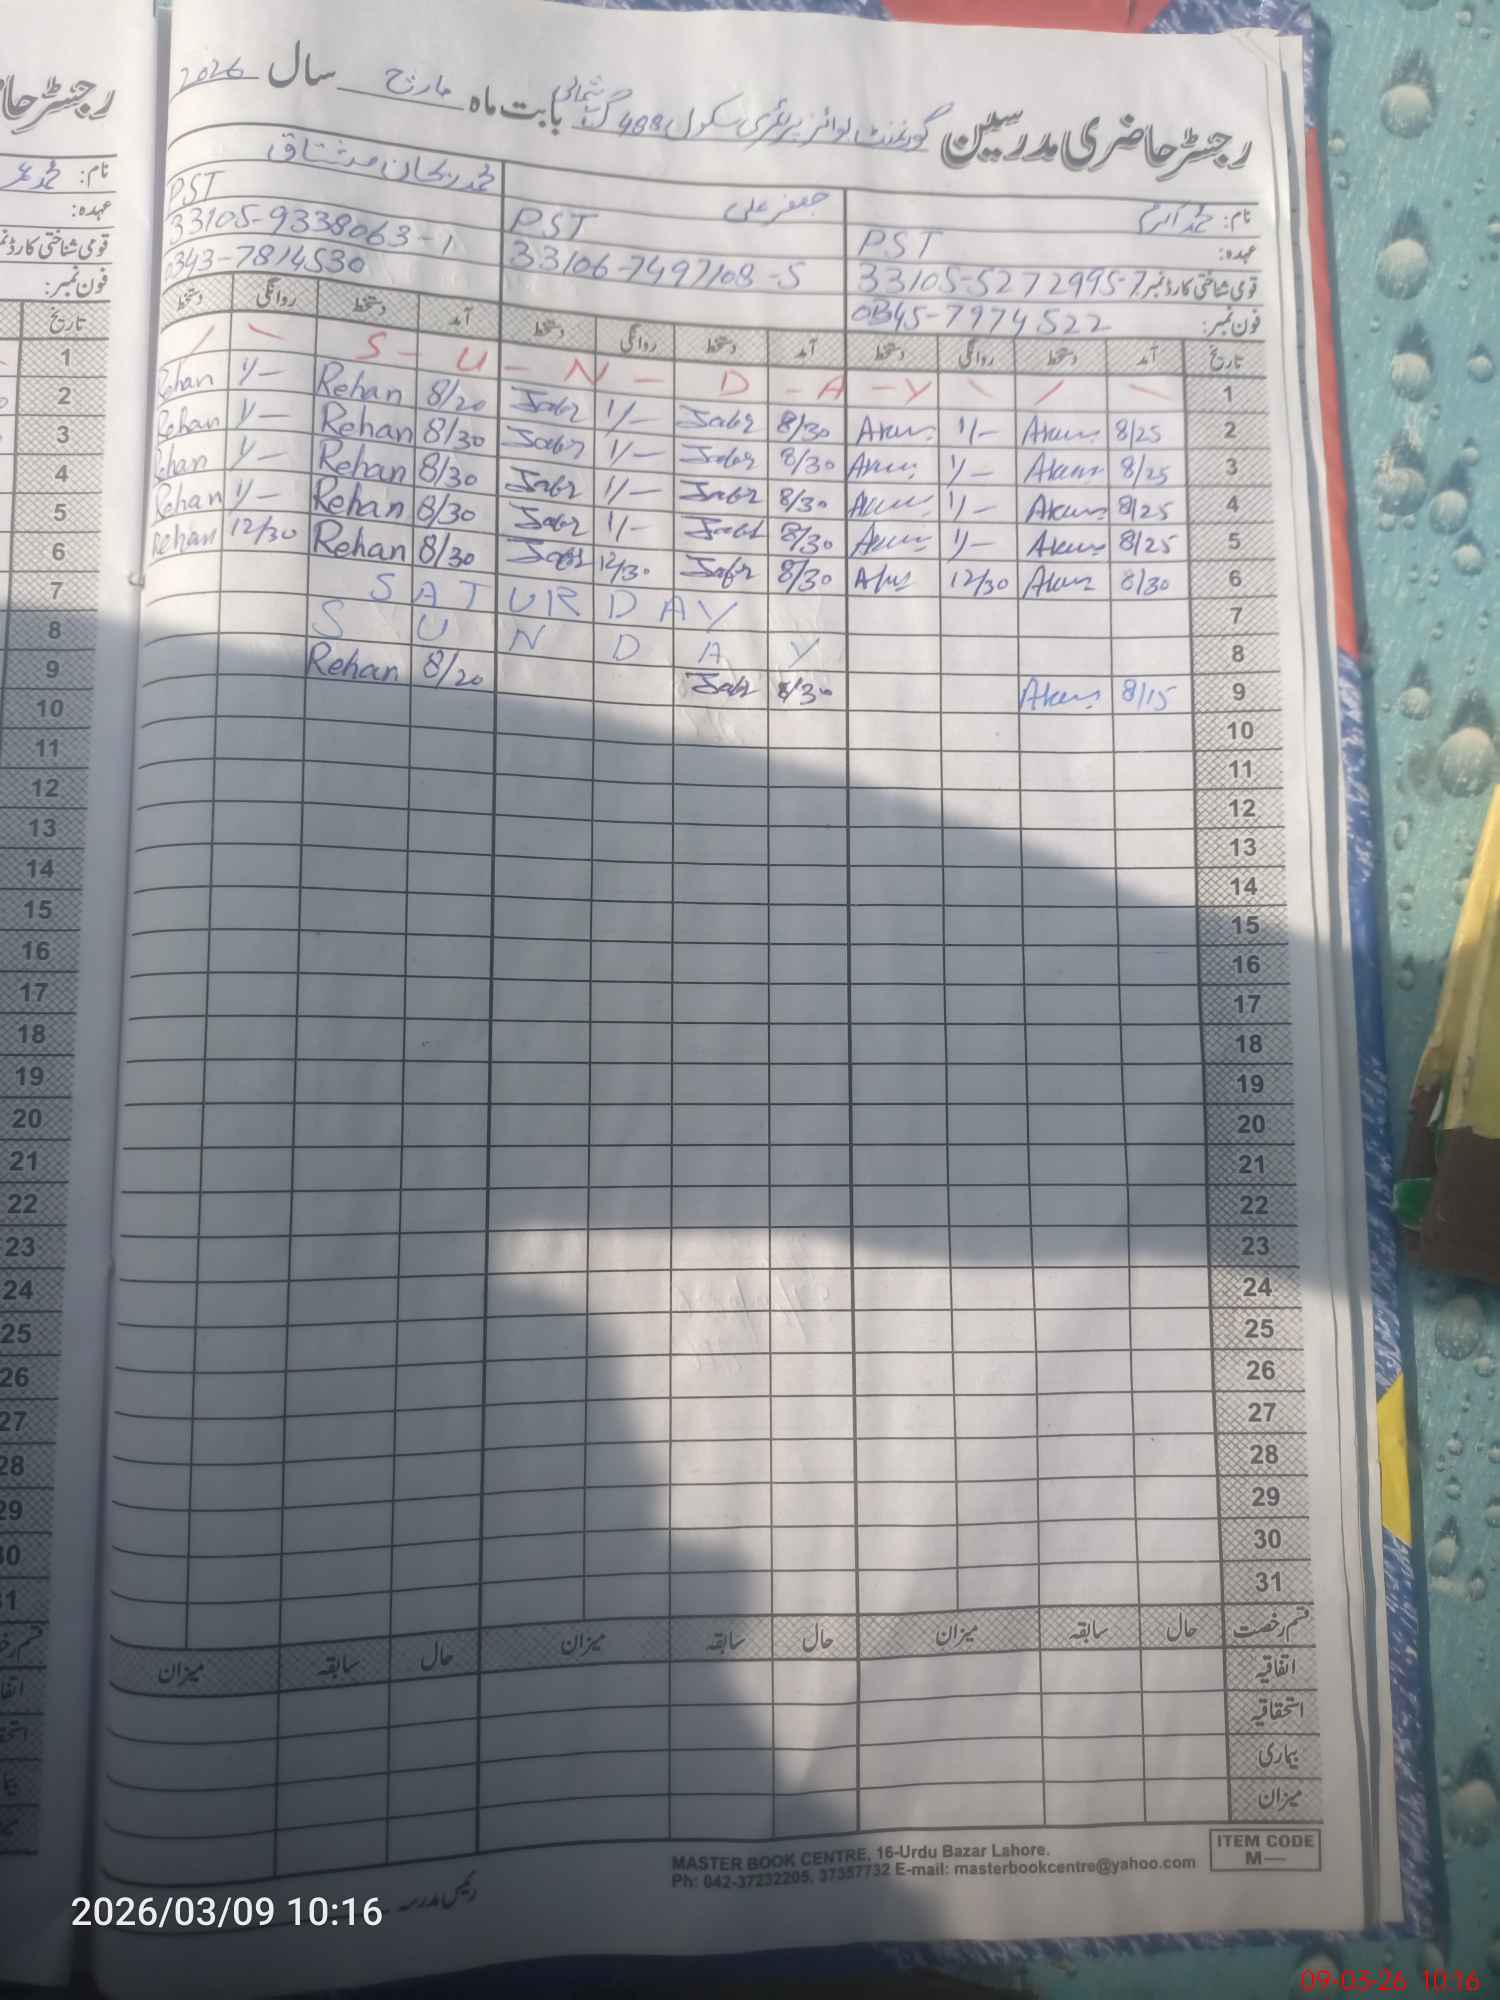 رجسٹر حاضری مدرسین گورنمنٹ بوائز پرائمری سکول 488 گ ب شمالی بابت ماہ مارچ سال 2026
نام: محمد اکرم جعفر علی محمد ریحان مشتاق
عہدہ: PST PST PST
قومی شناختی کارڈ نمبر: 33105-5272995-7 33106-7497108-5 33105-9338063-1
فون نمبر: 0345-7974522 0343-7814530
تاریخ آمد دستخط روانگی دستخط آمد دستخط روانگی دستخط آمد دستخط روانگی دستخط
1 S - U - N - D - A - Y
2 8/25 Akram 1/- Akram 8/30 Jafr 1/- Jafr 8/20 Rehan 1/- Rehan
3 8/25 Akram 1/- Akram 8/30 Jafr 1/- Jafr 8/30 Rehan 1/- Rehan
4 8/25 Akram 1/- Akram 8/30 Jafr 1/- Jafr 8/30 Rehan 1/- Rehan
5 8/25 Akram 1/- Akram 8/30 Jafr 1/- Jafr 8/30 Rehan 1/- Rehan
6 8/30 Akram 12/30 Akram 8/30 Jafr 12/30 Jafr 8/30 Rehan 12/30 Rehan
7 SATURDAY
8 SUNDAY
9 8/15 Akram 8/30 Jafr 8/20 Rehan
10
11
12
13
14
15
16
17
18
19
20
21
22
23
24
25
26
27
28
29
30
31
قسم رخصت حال سابقہ میزان حال سابقہ میزان حال سابقہ میزان
اتفاقیہ
استحقاقیہ
بیماری
میزان
MASTER BOOK CENTRE, 16-Urdu Bazar Lahore.
Ph: 042-37232205, 37357732 E-mail: masterbookcentre@yahoo.com
ITEM CODE
M—
رئیس مدرسہ
2026/03/09 10:16
09-03-26 10:16
رجسٹر حا
نام: محمد عمر
عہدہ:
قومی شناختی کارڈ نم
فون نمبر:
تاریخ
1
2
3
4
5
6
7
8
9
10
11
12
13
14
15
16
17
18
19
20
21
22
23
24
25
26
27
28
29
30
31